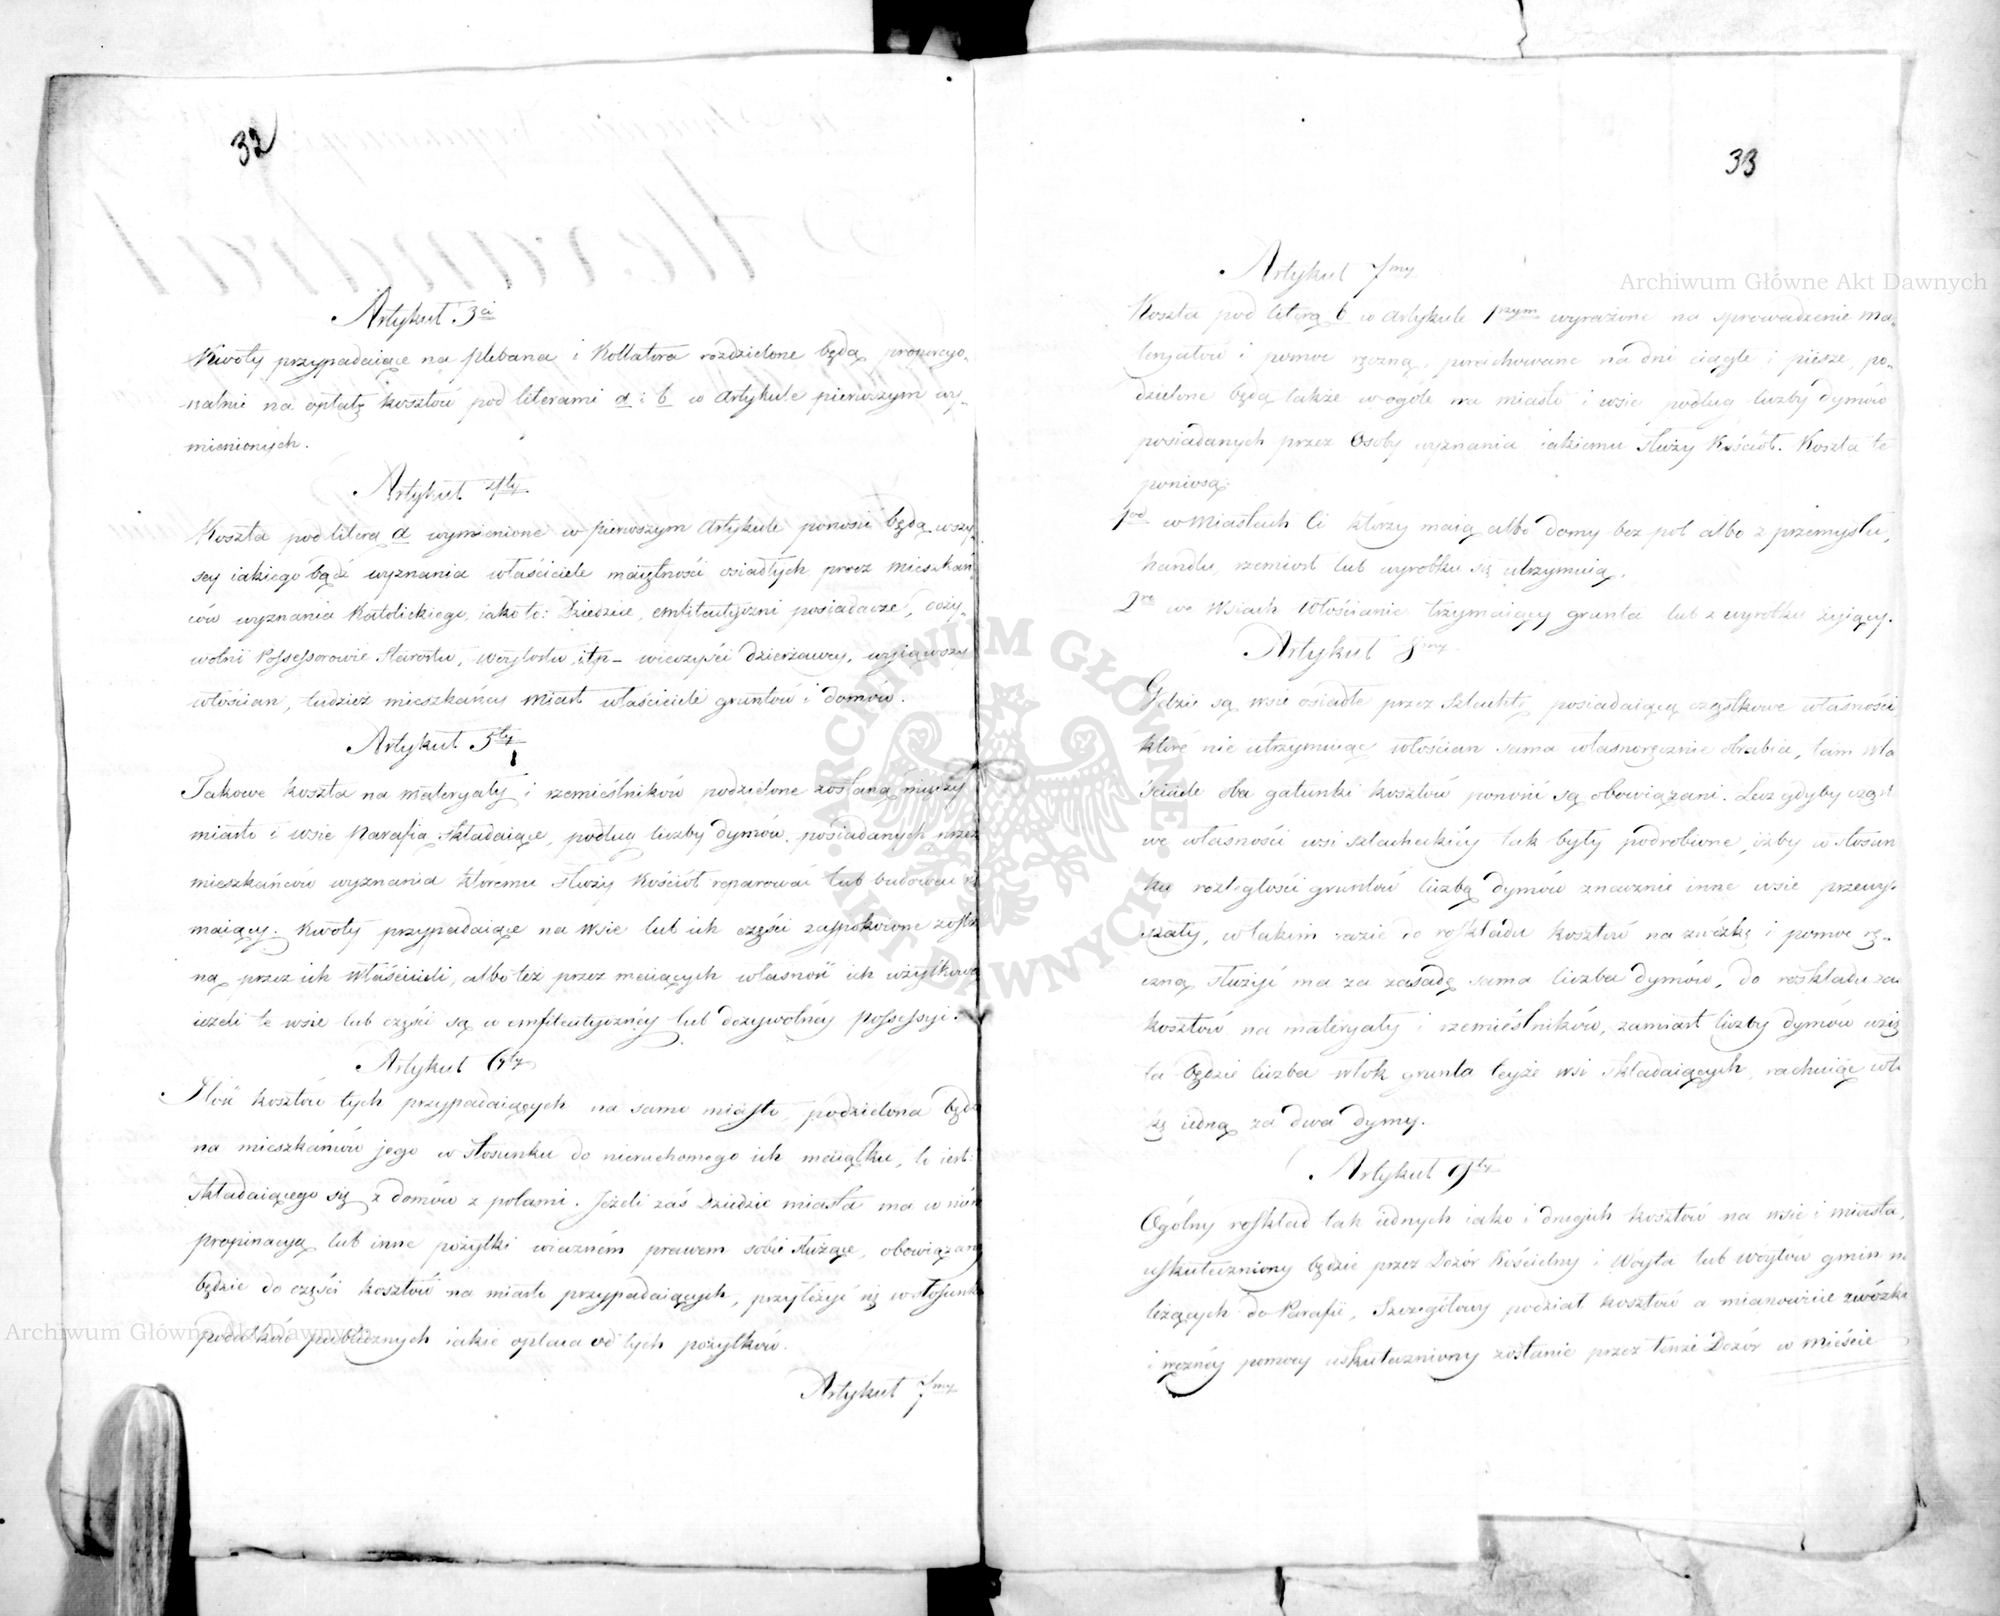 32
Artykuł 3ci
Kwoty przypadaiące na plebana i Kollatora rozdzielone będą proporcyo-
nalnie na opłatę kosztów pod literami a i b w Artykule pierwszym wy-
mienionych.
Artykuł 4ty
Koszta pod literą a wymienione w pierwszym Artykule ponosić będą wszy-
scy iakiego bądź wyznania właściciele maiętności osiadłych przez mieszkań-
ców wyznania Katolickiego, iako to: Dziedzice, emfiteutyczni posiadacze, doży-
wotni Possessorowie Starostw, Woytostw itp – wieczyści dzierżawcy, wyiąwszy
włościan, tudzież mieszkańcy Miast właściciele gruntów i domów.
Artykuł 5ty
Takowe koszta na materyały i rzemieślników podzielone zostaną między
miasto i wsie Parafią składaiące, podług liczby dymów posiadanych przez
mieszkańców wyznania któremu służy Kościół reparować lub budować się
maiący. Kwoty przypadaiące na wsie lub ich części zaspokoione zosta
ną przez ich Właścicieli, albo też przez maiących własność ich użytkową
ieżeli te wsie lub części są w emfiteutycznéy lub dożywotnéy possessyi.
Artykuł 6ty
Ilość kosztów tych przypadaiących na samo miasto podzielona będzie
na mieszkańców jego w stosunku do nieruchomego ich maiątku, to iest:
składaiącego się z domów z polami. Jeżeli zaś Dziedzic miasta ma w nim
propinacyą lub inne pożytki wieczném prawem sobie służące, obowiązany
będzie do części kosztów na miasto przypadaiących, przyłożyć się w stosunku
podatków publicznych iakie opłaca od tych pożytków.
Artykuł 7my
33
Artykuł 7my
Koszta pod literą b w Artykule 1szym wyrażone na sprowadzenie ma-
teryałów i pomoc ręczną, porachowane na dni ciągłe i piesze, po-
dzielone będą także w ogóle na miasto i wsie podług liczby dymów
posiadanych przez Osoby wyznania iakiemu służy Kościół. Koszta te
poniosą:
1od w Miastach Ci którzy maią albo domy bez pól albo z przemysłu,
handlu, rzemiosł lub wyrobku się utrzymuią.
2re we Wsiach Włościanie trzymaiący grunta lub z wyrobku żyiący.
Artykuł 8my
Gdzie są wsie osiadłe przez szlachtę posiadaiącą cząstkowe własności,
które nie utrzymuiąc włościan sama własnoręcznie obrabia, tam wła
ściciele oba gatunki kosztów ponosić są obowiązani. Lecz gdyby cząstko
we własności wsi szlacheckiéy tak były podrobione, iżby w stosun
ku rozległości gruntów liczbą dymów znacznie inne wsie przewyż
szały, w takim razie do rozkładu kosztów na zwózkę i pomoc rę-
czną służyć ma za zasadę sama liczba dymów, do rozkładu zaś
kosztów na materyały i rzemieślników, zamiast liczby dymów wzię
ta będzie liczba włók grunta teyże wsi składaiących, rachuiąc włó
kę iedną za dwa dymy.
Artykuł 9ty
Ogólny rozkład tak iednych iako i drugich kosztów na wsie i miasta,
uskuteczniony będzie przez Dozór Kościelny i Woyta lub Woytów gmin na
leżących do Parafii, Szczegółowy podział kosztów a mianowicie zwózki
i ręcznéy pomocy uskuteczniony zostanie przez tenże Dozór w mieście
Archiwum Główne Akt Dawnych
Archiwum Główne Akt Dawnych
ARCHIWUM GŁÓWNE AKT DAWNYCH